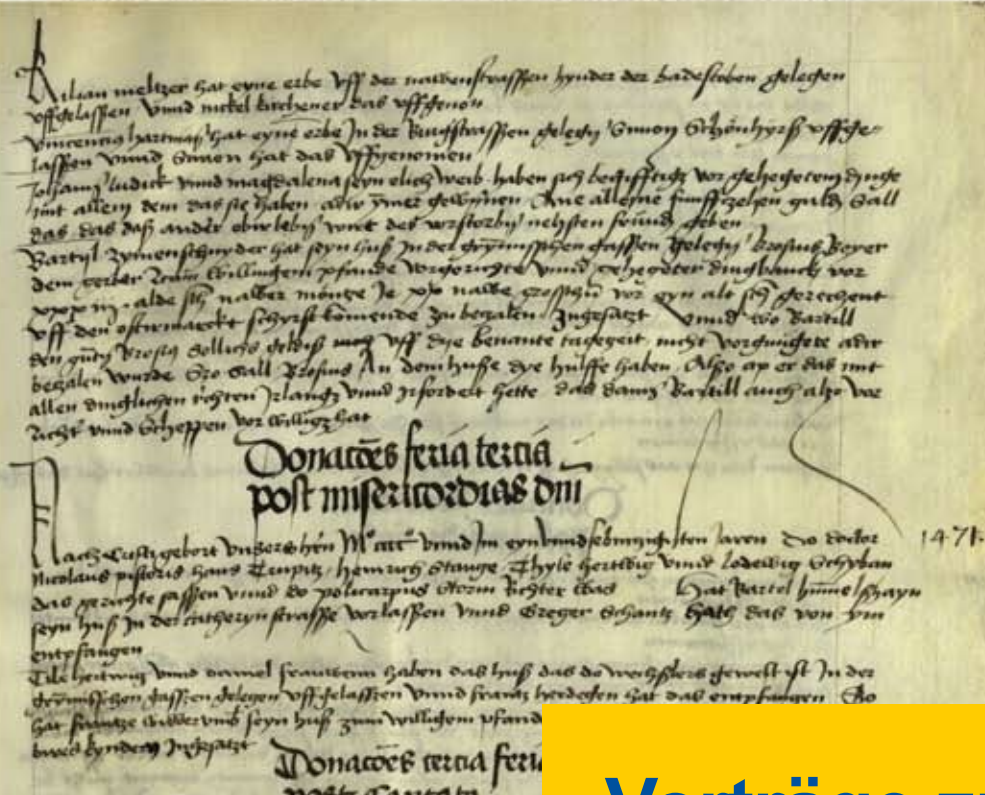 Kilian meltzer hat eyne erbe vff der nawenstrassen hynder der badestoben gelegen
vffgelassen vnnd nickel kirchener das vffgenon
Vincencius hartman hat eyne erbe In der Burgstrassen gelegen Simon Schönhyrß vffge-
lassen vnnd Simon hat das vffgenomen
Johannes ludick vnnd magdalena seyn elich weib haben sich begifftigt vor gehegetem dinge
mit allem dem das sie haben adir ymer gewynnen Ane alleine funffczehen guldn Sall
das das daß ander obirlebit wirt des vorstorbn nehsten frund geben
Bartil Zymmerschnyder hat seyn huß In der grymmischen gassen gelegn Brosius Beyer
dem gerber zcum willingem pfande vorgerichte vnnd gehegeter dingbanck vor
xxx iij alde ßch nawer montze Je xx nawe grosschn vor eyn alt ßch gerechent
vff den ostirmarckt schyrst komende zu beczalen Ingesatzt Vnnd wo Bartill
den gutn Brosin Sollichs geldiß vff dye benante tageczeit nicht vorgnugete adir
beczalen wurde Szo Sall Brosius An dem huße dye hulffe haben Also ap er das mit
allen dinglichen rechten Irlangt vnnd Irfordert hette das dann Bartill auch also vor
richter vnnd Scheppen vorwilligt hat
Donacões feria tercia
post misericordias dni
Nach Cristi gebort vnßers hern Mº cccc vnnd Im eynvndsebinczigisten Jaren Do doctor
1471
Nicolaus pistoris hans Trupitz heinrich Stange Thyle hertwig vnnd lodewig Schyban
das gerichte sassen vnnd do policarpus Storm Richter was Hat Bartel hayn
seyn huß In der catherynstrasse vorlassen vnnd Greger Schantz hath das von ym
entpfangen
Tile hertwig vnnd haben das huß das do wechßlers gewest ist In der
grymmischen gassen gelegen vffgelassen vnnd frantz herdegen hat das entpfangen So
hat seyn huß zum willigem pfand
kyndern Ingesatzt
Donacões tercia feria
post Cantate
Vorträge